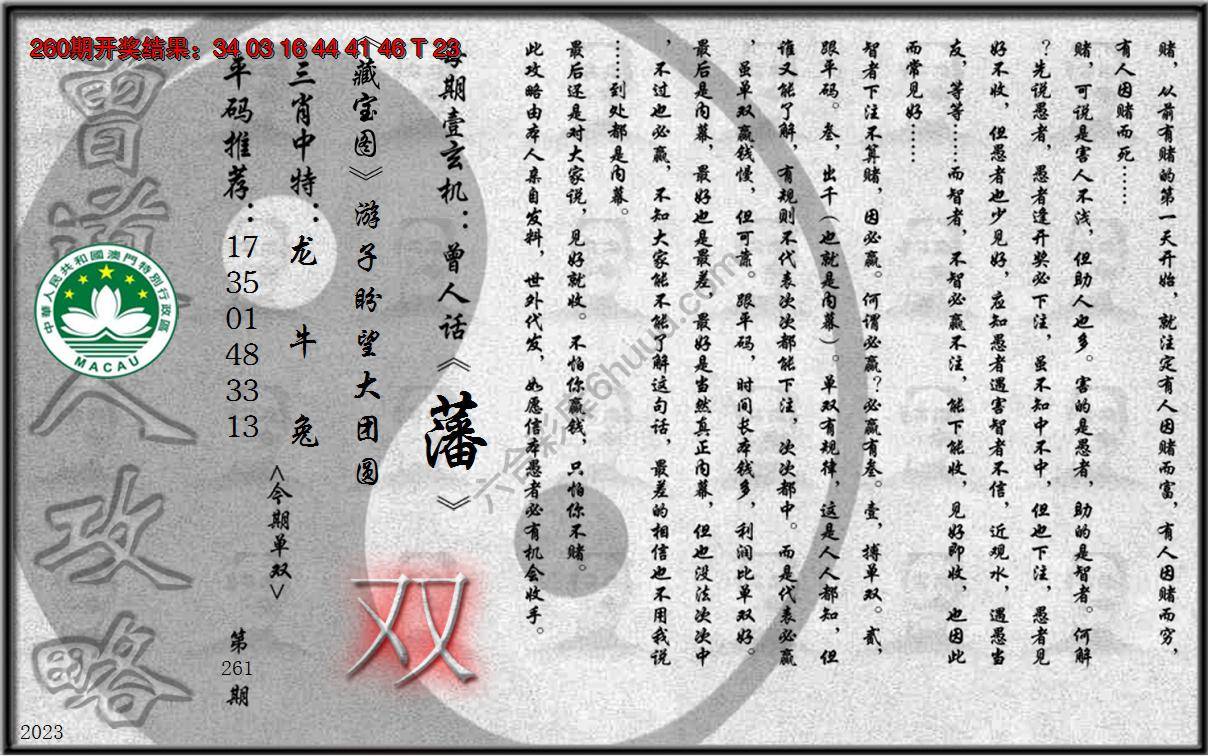 260期开奖结果：34 03 16 44 41 46 T 23
赌，从前有赌的第一天开始，就注定有人因赌而富，有人因赌而穷，
有人因赌而死……
赌，可说是害人不浅，但助人也多。害的是愚者，助的是智者。何解
？先说愚者，愚者逢开奖必下注，虽不知中不中，但也下注，愚者见
好不收，但愚者也少见好，应知愚者遇害智者不信，近观水，遇愚当
友，等等……而智者，不智必赢不注，能下能收，见好即收，也因此
而常见好……
智者下注不算赌，因必赢。何谓必赢？必赢有叁。壹，搏单双。贰，
跟平码。叁，出千（也就是内幕）。单双有规律，这是人人都知，但
谁又能了解，有规则不代表次次都能下注，次次都中。而是代表必赢
，虽单双赢钱慢，但可靠。跟平码，时间长本钱多，利润比单双好。
最后是内幕，最好也是最差，最好是当然真正内幕，但也没法次次中
，不过也必赢，不知大家能不能了解这句话，最差的相信也不用我说
……到处都是内幕。
最后还是对大家说，见好就收。不怕你赢钱，只怕你不赌。
此攻略由本人亲自发料，世外代发，如愿信本愚者必有机会收手。
每期壹玄机：曾人话《藩》
《藏宝图》游子盼望大团圆
三肖中特：龙 牛 兔
平码推荐：17 35 01 48 33 13
<今期单双>
双
第261期
曾道人攻略
中華人民共和國澳門特別行政區
MACAU
六合彩库6huuu.com
2023